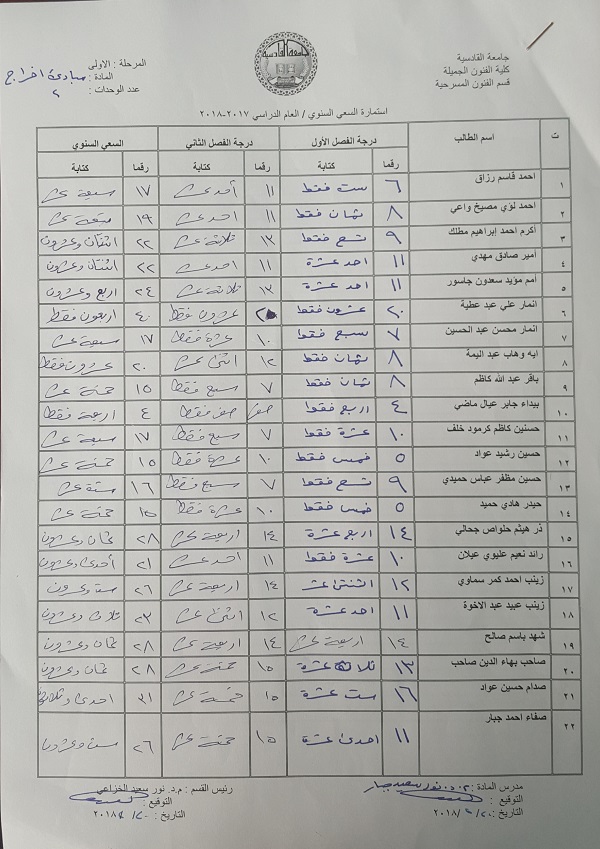 جامعة القادسية
كلية الفنون الجميلة
قسم الفنون المسرحية
جامعة القادسية
المرحلة : الاولى
المادة : مبادئ اخراج
عدد الوحدات : ٢
استمارة السعي السنوي / العام الدراسي ٢٠١٧-٢٠١٨
ت اسم الطالب درجة الفصل الأول درجة الفصل الثاني السعي السنوي
رقما كتابة رقما كتابة رقما كتابة
١ احمد قاسم رزاق ٦ ست فقط ١١ أحد عشر ١٧ سبعة عشر
٢ احمد لؤي مصيخ واعي ٨ ثمان فقط ١١ احد عشر ١٩ تسعة عشر
٣ اكرم احمد إبراهيم مطلك ٩ تسع فقط ١٣ ثلاثة عشر ٢٢ اثنتان وعشرون
٤ أمير صادق مهدي ١١ احد عشرة ١١ احد عشر ٢٢ اثنتان وعشرون
٥ أمم مؤيد سعدون جاسور ١١ احد عشرة ١٣ ثلاثة عشر ٢٤ اربع وعشرون
٦ انمار علي عبد عطية ٢٠ عشرون فقط ٢٠ عشرون فقط ٤٠ اربعون فقط
٧ انمار محسن عبد الحسين ٧ سبع فقط ١٠ عشرة فقط ١٧ سبعة عشر
٨ ايه وهاب عبد اليمة ٨ ثمان فقط ١٢ اثنى عشر ٢٠ عشرون فقط
٩ باقر عبد الله كاظم ٨ ثمان فقط ٧ سبع فقط ١٥ خمسة عشر
١٠ بيداء جابر عيال ماضي ٤ اربع فقط صفر صفر فقط ٤ اربعة فقط
١١ حسنين كاظم كرمود خلف ١٠ عشرة فقط ٧ سبع فقط ١٧ سبعة عشر
١٢ حسين رشيد عواد ٥ خمس فقط ١٠ عشرة فقط ١٥ خمسة عشر
١٣ حسين مظفر عباس حميدي ٩ تسع فقط ٧ سبع فقط ١٦ ستة عشر
١٤ حيدر هادي حميد ٥ خمس فقط ١٠ عشرة فقط ١٥ خمسة عشر
١٥ ذر هيثم حلواص جحالي ١٤ اربع عشرة ١٤ اربعة عشر ٢٨ ثمان وعشرون
١٦ رائد نعيم عليوي عبلان ١٠ عشرة فقط ١١ احد عشر ٢١ أحدى وعشرون
١٧ زينب احمد كمر سماوي ١٢ اثنتى عشر ١٤ اربعة عشر ٢٦ ست وعشرون
١٨ زينب عبيد عبد الاخوة ١١ احد عشرة ١٢ اثنى عشر ٢٣ ثلاث وعشرون
١٩ شهد باسم صالح ١٤ اربعة عشر ١٤ اربعة عشر ٢٨ ثمان وعشرون
٢٠ صاحب بهاء الدين صاحب ١٣ ثلاثة عشرة ١٥ خمسة عشر ٢٨ ثمان وعشرون
٢١ صدام حسين عواد ١٦ ست عشرة ١٥ خمسة عشر ٣١ احدى وثلاثون
٢٢ صفاء احمد جبار ١١ احدى عشرة ١٥ خمسة عشر ٢٦ ست وعشرون
مدرس المادة : نور سعيد جبار
التوقيع :
التاريخ : ٢٠١٨
رئيس القسم : م.د. نور سعيد الخزاعي
التوقيع :
التاريخ : ٢٠١٨